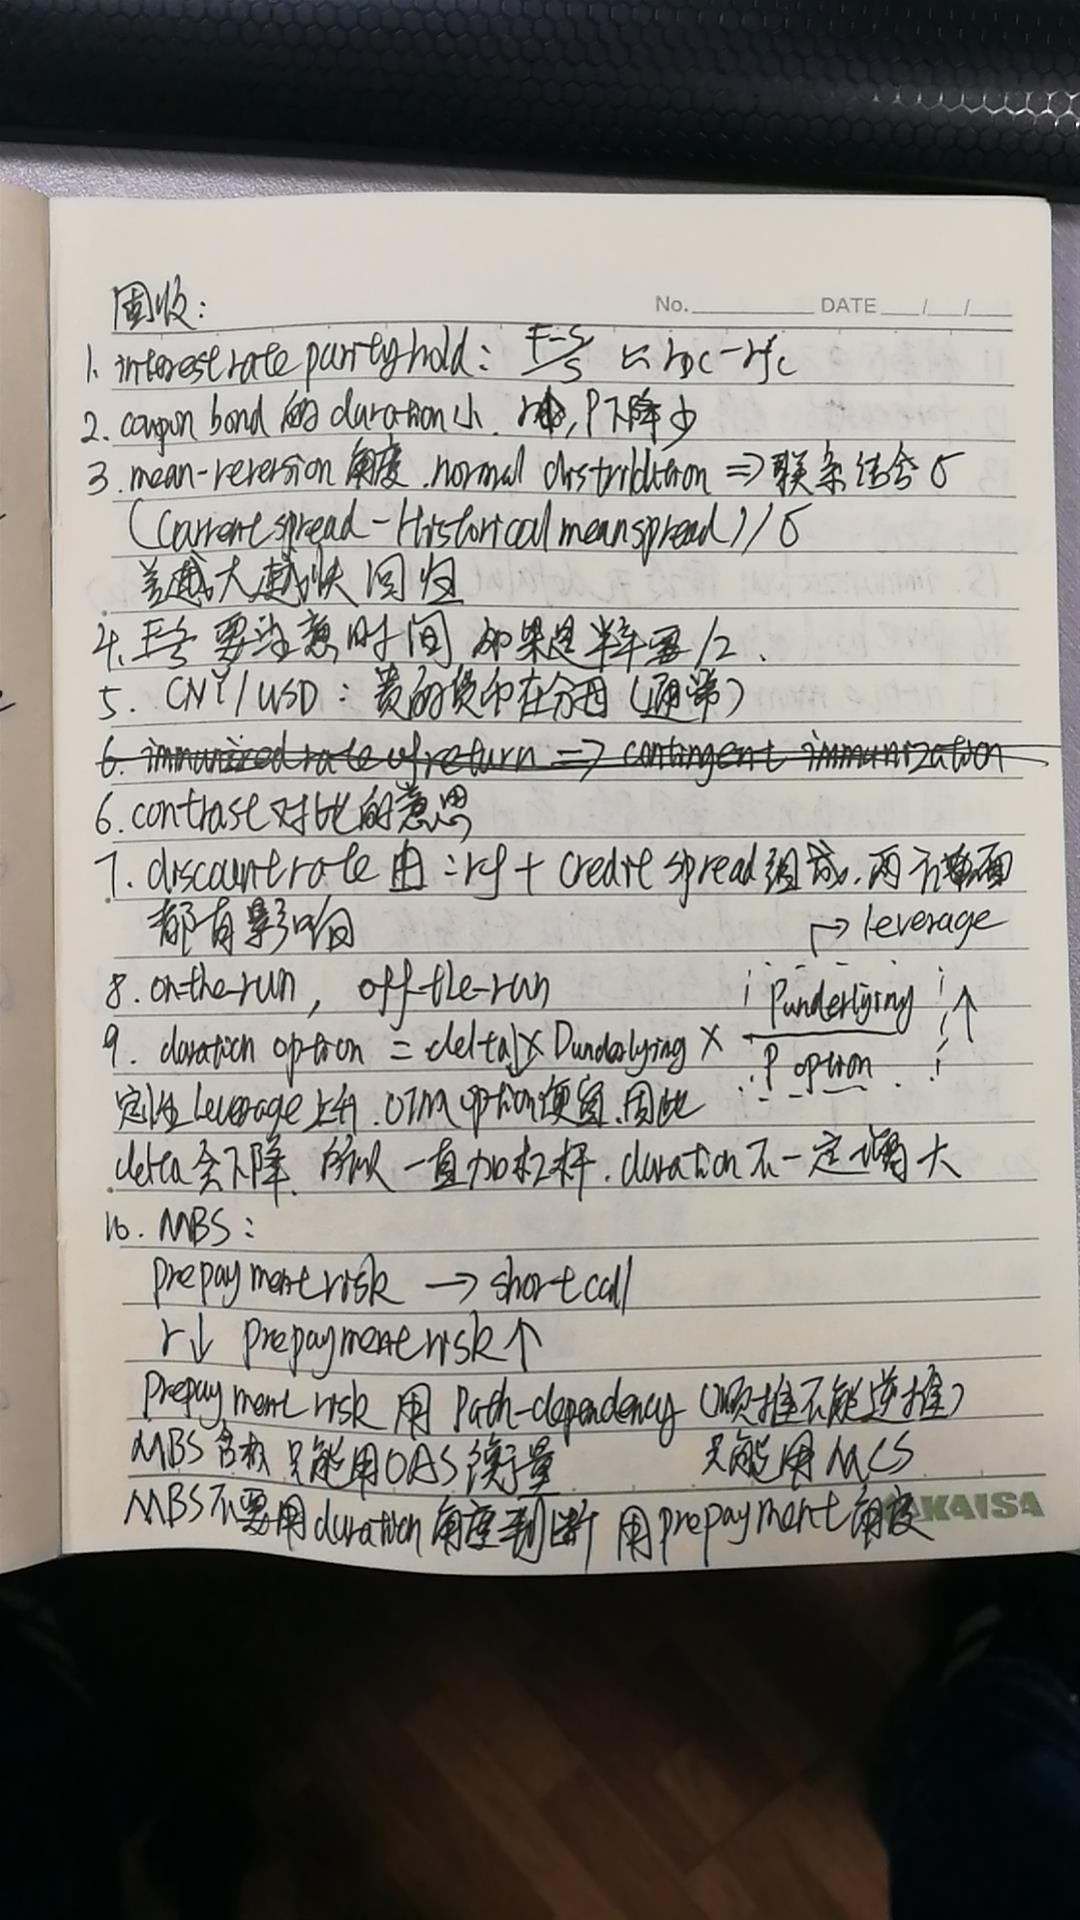 No. DATE / /
固收:
1. interest rate parity hold: F-S/S ≈ rDC-rfc
2. coupon bond 的 duration 小, r↑, P下降少
3. mean-reversion 角度. normal distribution ⇒ 联系结合 σ
(Current spread - Historical mean spread) / σ
差越大越快回归
4. 要注意时间 如果是半年要/2.
5. CNY/USD: 贵的货币在分母(通常)
6. immunized rate of return ⇒ contingent immunization
6. contrast 对比的意思
7. discount rate 由: rf + credit spread 组成, 两方面
都有影响
→ leverage
8. on-the-run, off-the-run
9. duration option = delta × Dunderlying × Punderlying / P option ↑
定性 leverage 上升. OTM option便宜. 因此
delta 会下降. 所以一直加杠杆. duration 不一定增大
10. MBS:
prepayment risk → short call
r↓ prepayment risk ↑
Prepayment risk 用 Path-dependency (顺推不能逆推)
MBS含权 只能用OAS衡量 只能用MCS
MBS不要用duration角度判断 用prepayment角度
AKAISA